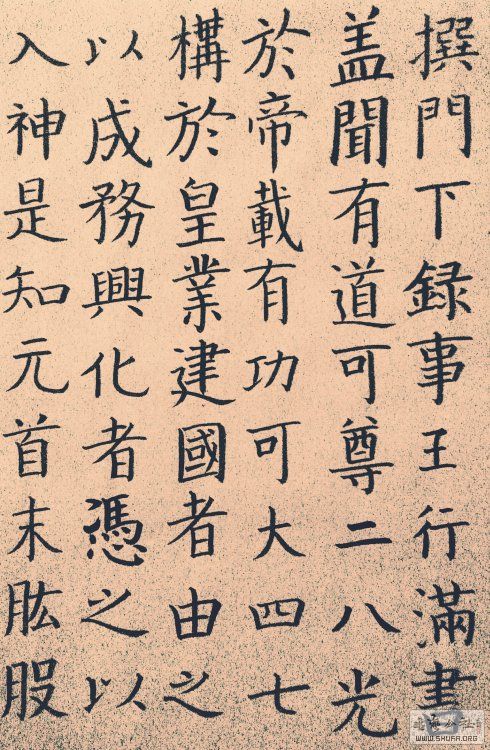 撰門下録事王行滿書
盖聞有道可尊二八光
於帝載有功可大四七
構於皇業建國者由之
以成務興化者憑之以
入神是知元首末肱股
WWW.SHUFA.ORG